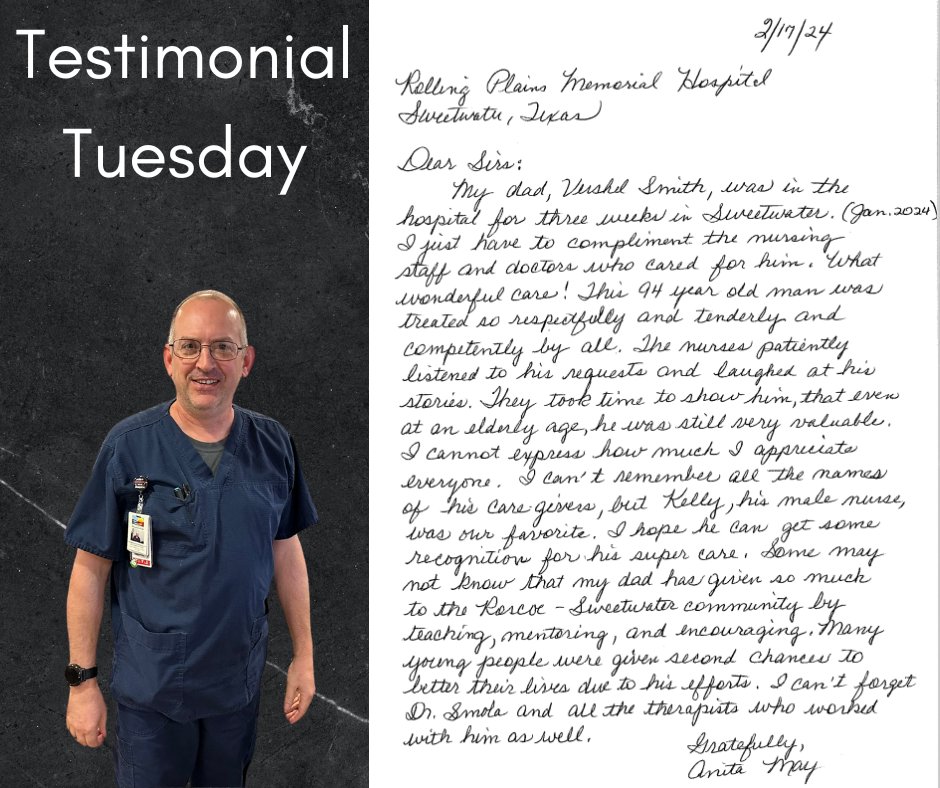 Testimonial
Tuesday
2/17/24
Rolling Plains Memorial Hospital
Sweetwater, Texas
Dear Sirs:
My dad, Vershel Smith, was in the
hospital for three weeks in Sweetwater. (Jan. 2024)
I just have to compliment the nursing
staff and doctors who cared for him. What
wonderful care! This 94 year old man was
treated so respectfully and tenderly and
competently by all. The nurses patiently
listened to his requests and laughed at his
stories. They took time to show him, that even
at an elderly age, he was still very valuable.
I cannot express how much I appreciate
everyone. I can't remember all the names
of his care givers, but Kelly, his male nurse,
was our favorite. I hope he can get some
recognition for his super care. Some may
not know that my dad has given so much
to the Roscoe - Sweetwater community by
teaching, mentoring, and encouraging. Many
young people were given second chances to
better their lives due to his efforts. I can't forget
Dr. Smola and all the therapists who worked
with him as well.
Gratefully,
Anita May